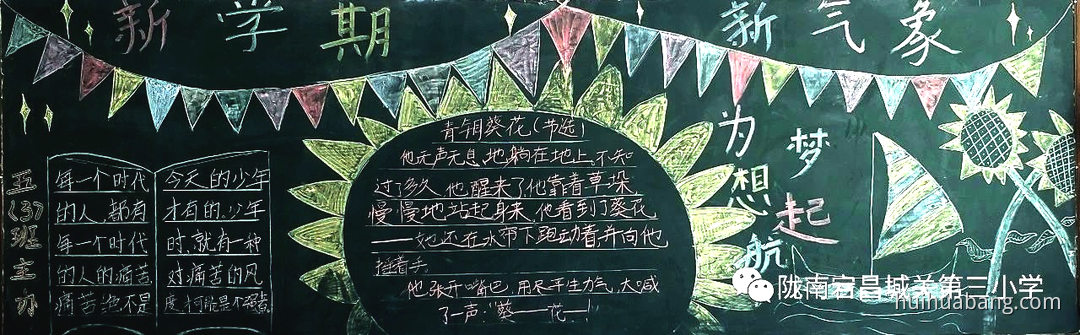 新学期 新气象
五(3)班主办
每一个时代
的人，都有
每一个时代
的人的痛苦
痛苦绝不是
今天的少年
才有的。少年
时，就有一种
对痛苦的风
青铜葵花(节选)
他无声无息地躺在地上，不知
过了多久，他醒来了他靠着草垛，
慢慢地站起身来，他看到了葵花
——她还在水帘下跑动着，并向他
挥着手。
他张开嘴巴，用尽平生力气，大喊
了一声:“葵——花——!”
为梦想起航
陇南宕昌城关第三小学
huihuabang.com